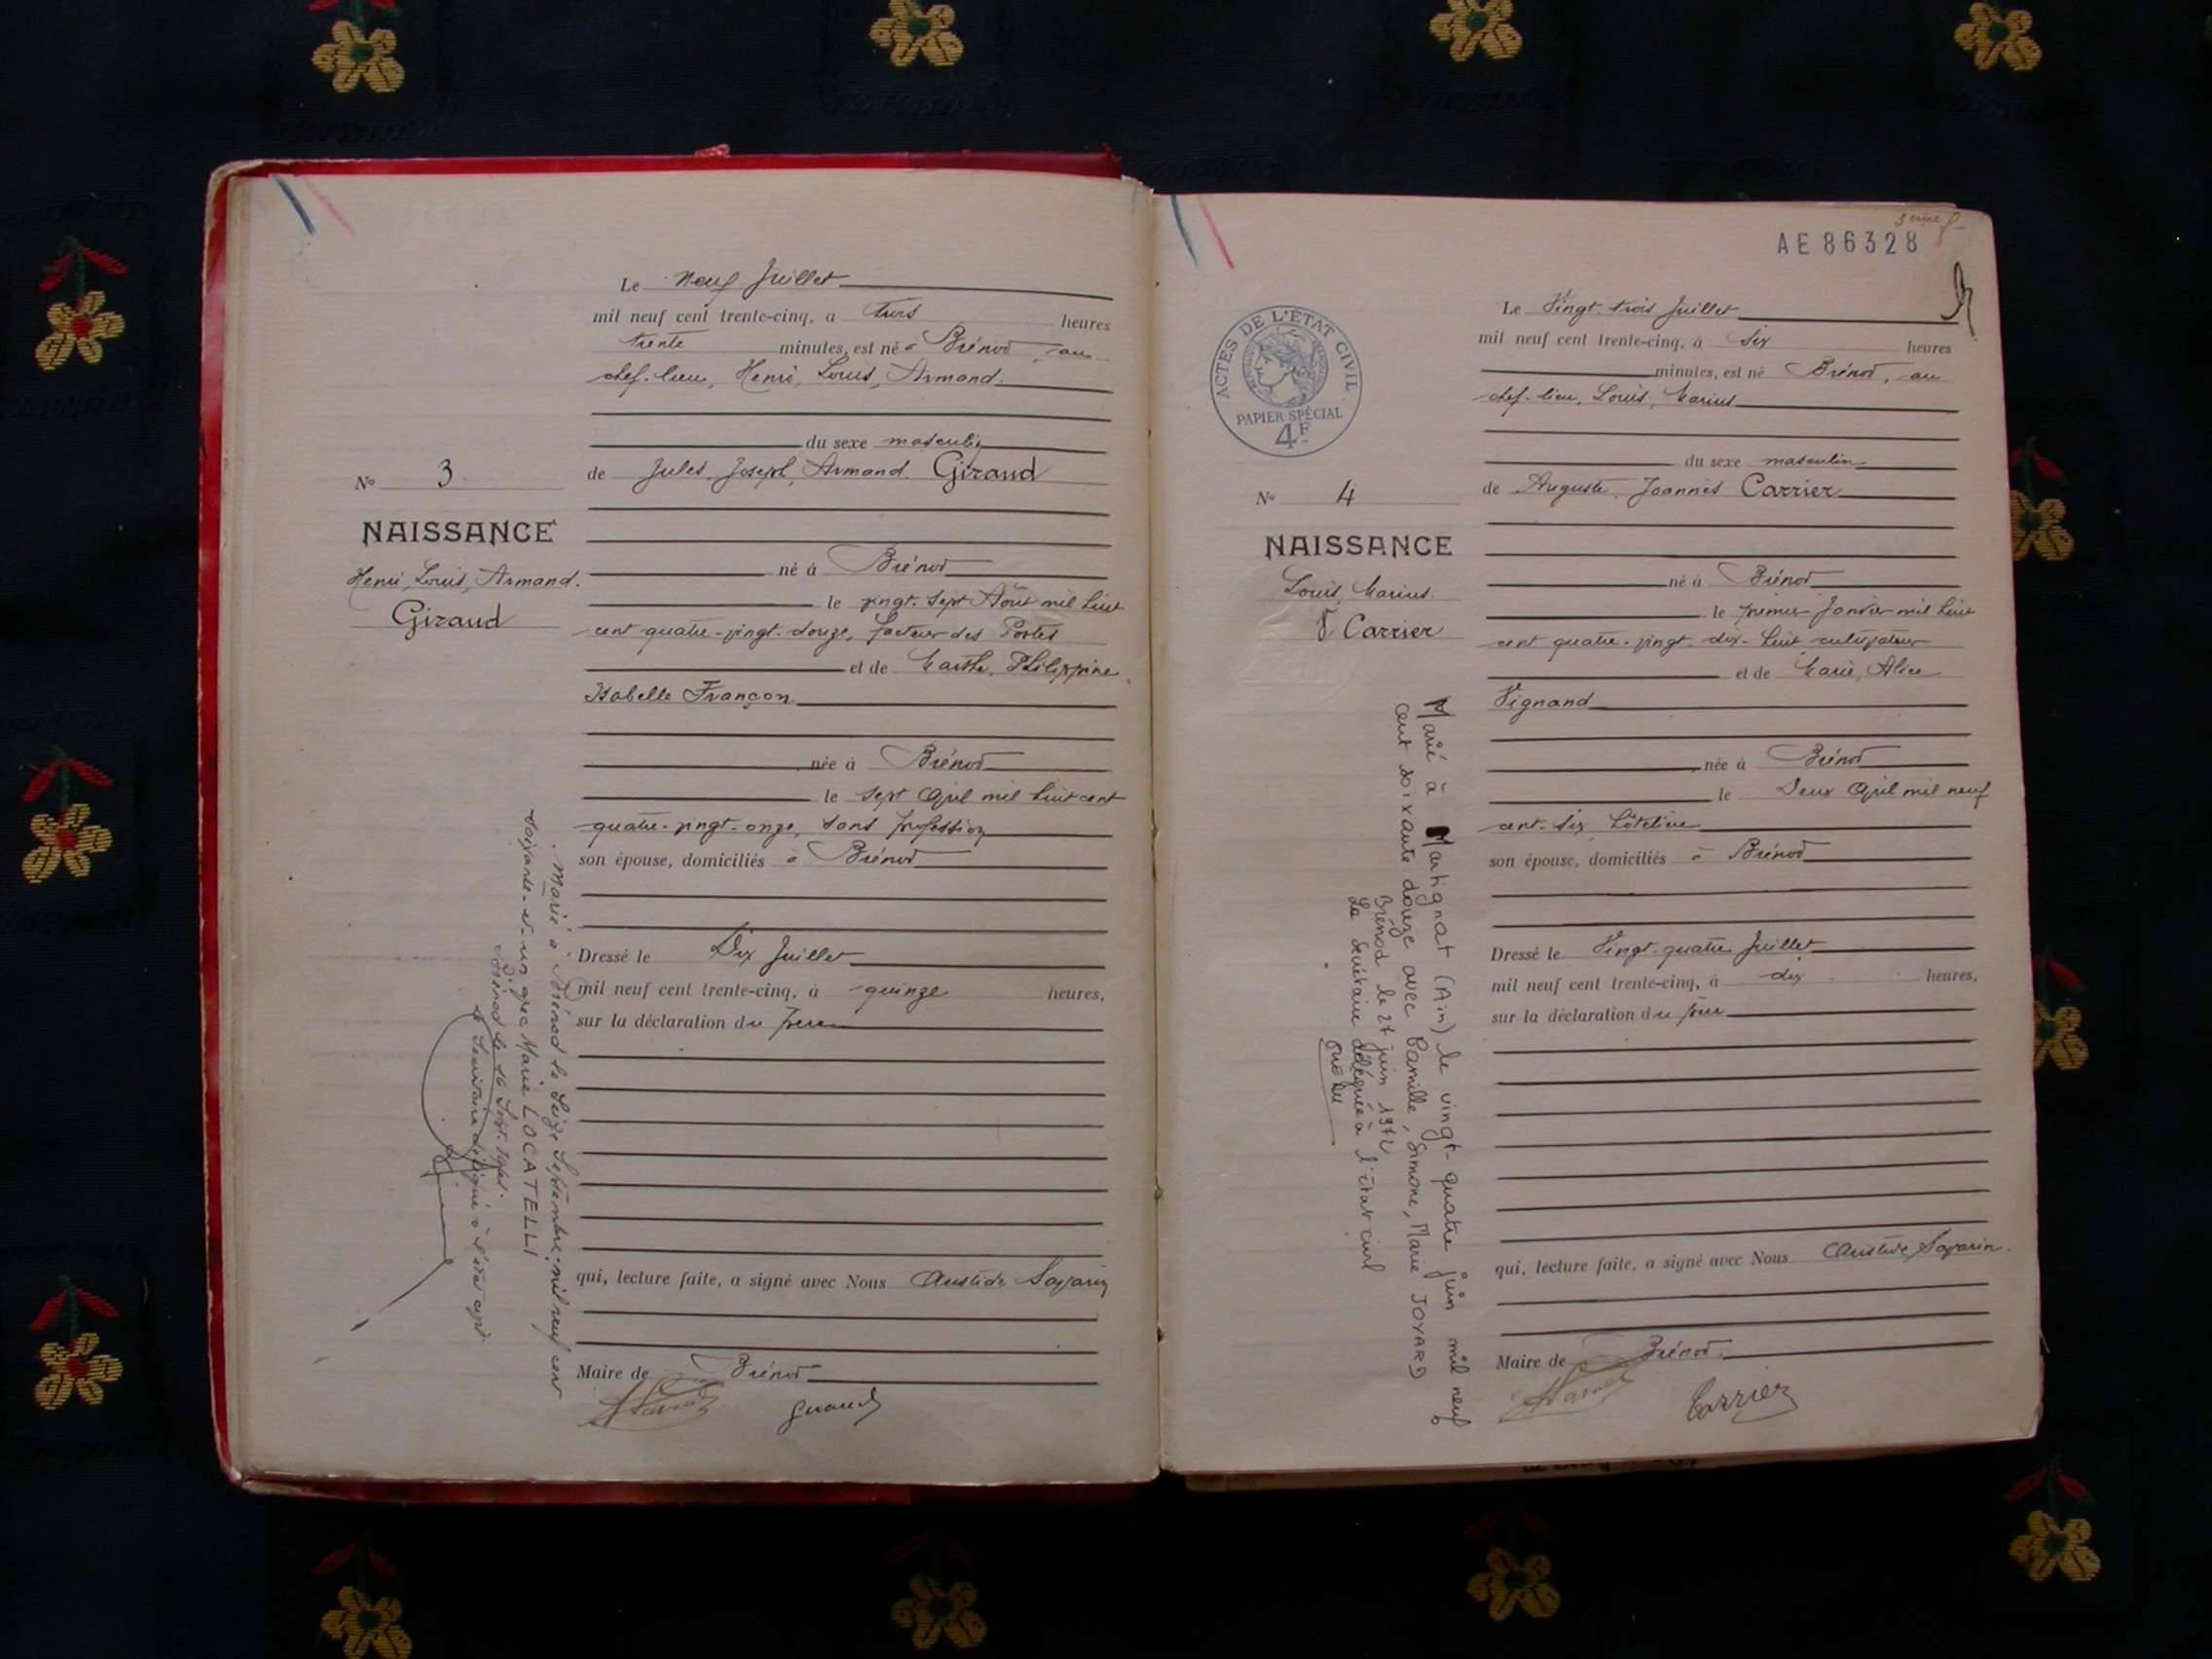 Le Neuf Juillet
mil neuf cent trente-cinq, à trois heures
trente minutes, est né à Brénod, au
chef-lieu, Henri, Louis, Armand.
du sexe masculin
de Jules, Joseph, Armand Giraud
né à Brénod
le vingt-sept Août mil huit
cent quatre-vingt-douze, facteur des Postes
et de Marthe, Philippine,
Isabelle Françon
née à Brénod
le sept Avril mil huit cent
quatre-vingt-onze, sans profession
son épouse, domiciliés à Brénod
Dressé le Dix Juillet
mil neuf cent trente-cinq, à quinze heures,
sur la déclaration du père
qui, lecture faite, a signé avec Nous Aristide Savarin
Maire de Brénod
Giraud
No 3
NAISSANCE
Henri, Louis, Armand.
Giraud
Marié à Brénod le Seize Septembre mil neuf cent
soixante-et-un avec Marie LOCATELLI
Brénod le 16 Sept. 1961.
le Secrétaire délégué à l'état civil
3
AE86328
ACTES DE L'ÉTAT CIVIL
PAPIER SPÉCIAL
4F
Le Vingt-trois Juillet
mil neuf cent trente-cinq, à six heures
minutes, est né Brénod, au
chef-lieu, Louis, Marius
du sexe masculin
de Auguste, Joannès Carrier
né à Brénod
le premier Janvier mil huit
cent quatre-vingt-dix-huit, cultivateur
et de Marie, Alice
Vignand
née à Brénod
le Deux Avril mil neuf
cent-six, hôtelière
son épouse, domiciliés à Brénod
Dressé le Vingt-quatre Juillet
mil neuf cent trente-cinq, à dix heures,
sur la déclaration du père
qui, lecture faite, a signé avec Nous Aristide Savarin.
Maire de Brénod.
Carrier
No 4
NAISSANCE
Louis, Marius.
Carrier
Marié à Martignat (Ain) le vingt-quatre juin mil neuf
cent soixante douze avec Camille, Simone, Marie JOYARD
Brénod le 27 juin 1972
La Secrétaire déléguée à l'état civil